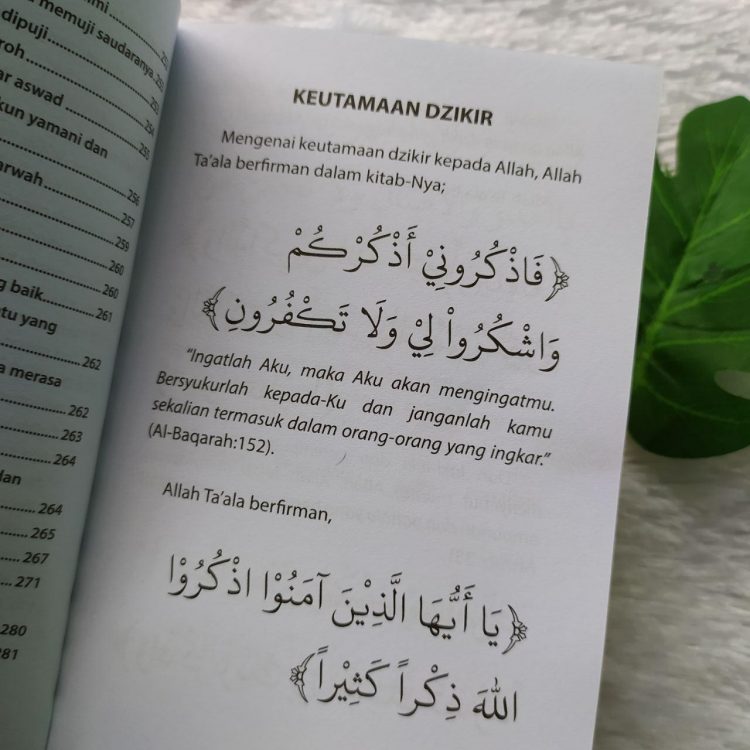 memuji saudaranya 252
dipuji
roh 253
ar aswad 254
kun yamani dan
255
arwah
256
257
259
260
g baik 260
tu yang 261
262
a merasa
262
263
264
dan
264
265
267
271
280
281
KEUTAMAAN DZIKIR
Mengenai keutamaan dzikir kepada Allah, Allah
Ta'ala berfirman dalam kitab-Nya;
﴿فَاذْكُرُونِيْ أَذْكُرْكُمْ
وَاشْكُرُواْ لِيْ وَلَا تَكْفُرُونِ﴾
"Ingatlah Aku, maka Aku akan mengingatmu.
Bersyukurlah kepada-Ku dan janganlah kamu
sekalian termasuk dalam orang-orang yang ingkar."
(Al-Baqarah:152).
Allah Ta'ala berfirman,
﴿يَا أَيُّهَا الَّذِيْنَ آمَنُوْا اذْكُرُوْا
اللهَ ذِكْراً كَثِيْراً﴾